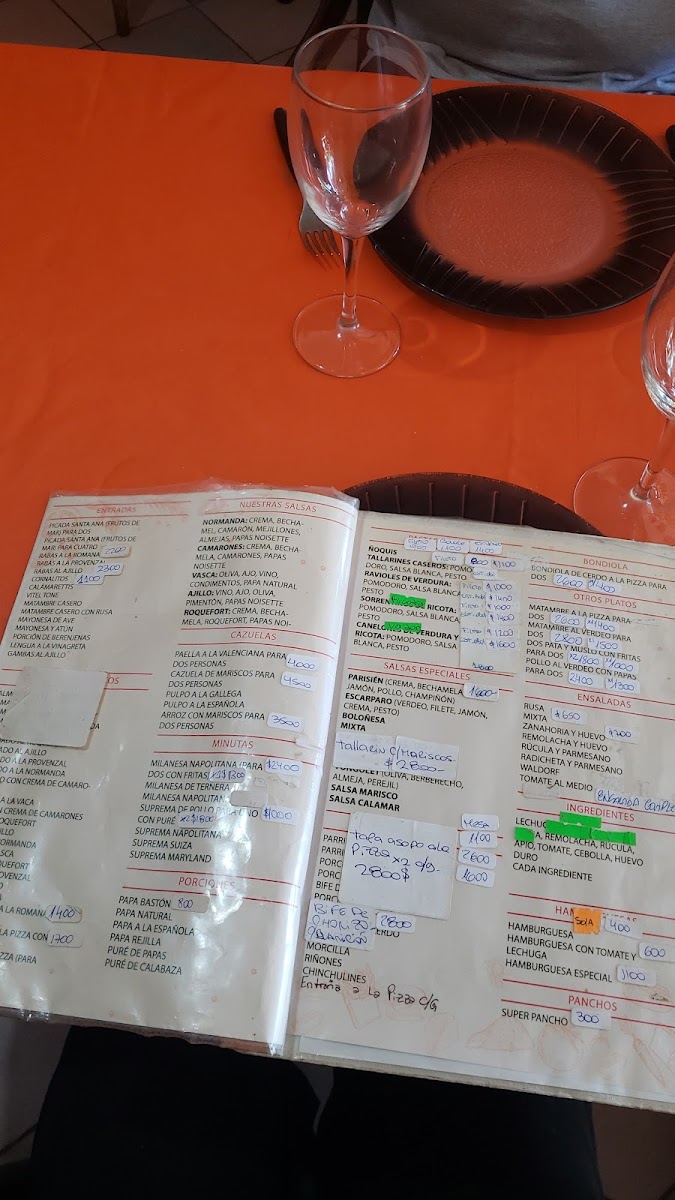 ENTRADAS
PICADA SANTA ANA (FRUTOS DE
MAR) PARA DOS
PICADA SANTA ANA (FRUTOS DE
MAR) PARA CUATRO
RABAS A LA ROMANA 2200
RABAS A LA PROVENZAL
RABAS AL AJILLO 2300
CORNALITOS 1100
CALAMARETTIS
VITEL TONE
MATAMBRE CASERO
MATAMBRE CASERO CON RUSA
MAYONESA DE AVE
MAYONESA Y ATÚN
PORCIÓN DE BERENJENAS
LENGUA A LA VINAGRETA
GAMBAS AL AJILLO
OS
ADO AL AJILLO
DO A LA PROVENZAL
O A LA NORMANDA
O CON CREMA DE CAMARO-
A LA VACA
CREMA DE CAMARONES
OQUEFORT
JILLO
NORMANDA
ASCA
QUEFORT
OVENZAL
A LA ROMANA 1400
LA PIZZA CON 1700
ZZA (PARA
NUESTRAS SALSAS
NORMANDA: CREMA, BECHA-
MEL, CAMARÓN, MEJILLONES,
ALMEJAS, PAPAS NOISETTE
CAMARONES: CREMA, BECHA-
MELA, CAMARONES, PAPAS
NOISETTE
VASCA: OLIVA, AJO, VINO,
CONDIMENTOS, PAPA NATURAL
AJILLO: VINO, AJO, OLIVA,
PIMENTÓN, PAPAS NOISETTE
ROQUEFORT: CREMA, BECHA-
MELA, ROQUEFORT, PAPAS NOI-
CAZUELAS
PAELLA A LA VALENCIANA PARA
DOS PERSONAS 4000
CAZUELA DE MARISCOS PARA
DOS PERSONAS 4500
PULPO A LA GALLEGA
PULPO A LA ESPAÑOLA
ARROZ CON MARISCOS PARA
DOS PERSONAS 3500
MINUTAS
MILANESA NAPOLITANA (PARA $2400
DOS CON FRITAS)
MILANESA DE TERNERA
MILANESA NAPOLITANA
SUPREMA DE POLLO
CON PURÉ $1000
SUPREMA NAPOLITANA
SUPREMA SUIZA
SUPREMA MARYLAND
PORCIONES
PAPA BASTÓN 800
PAPA NATURAL
PAPA A LA ESPAÑOLA
PAPA REJILLA
PURÉ DE PAPAS
PURÉ DE CALABAZA
ÑOQUIS
TALLARINES CASEROS: POMO
DORO, SALSA BLANCA, PESTO
RAVIOLES DE VERDURA:
POMODORO, SALSA BLANCA,
PESTO
SORREN RICOTA:
POMODORO, SALSA BLANCA,
PESTO
CANEL DE VERDURA Y
RICOTA: POMODORO, SALSA
BLANCA, PESTO
SALSAS ESPECIALES
PARISIÉN (CREMA, BECHAMELA
JAMÓN, POLLO, CHAMPIÑÓN)
ESCARPARO (VERDEO, FILETE, JAMÓN,
CREMA, PESTO)
BOLOÑESA
MIXTA
TALLARIN C/MARISCOS
$2800-
(OLIVA, BERBERECHO,
ALMEJA, PEREJIL)
SALSA MARISCO
SALSA CALAMAR
PARRI
1100
PARRI
2600
PORC
1600
PORC
BIFE D
PORC
Pizza x2 c/g-
2800$
BIFE DE
CHORIZO 2800
MORCILLA
RIÑONES
CHINCHULINES
Entraña a La Pizza c/G
BONDIOLA
BONDIOLA DE CERDO A LA PIZZA PARA
DOS 2600 1/1400
OTROS PLATOS
MATAMBRE A LA PIZZA PARA
DOS 2600 1/1400
MATAMBRE AL VERDEO PARA
DOS 2800 1/1500
DOS PATA Y MUSLO CON FRITAS
PARA DOS
POLLO AL VERDEO CON PAPAS
PARA DOS 2400 1/1300
ENSALADAS
RUSA
MIXTA $650
ZANAHORIA Y HUEVO
REMOLACHA Y HUEVO
RÚCULA Y PARMESANO
RADICHETA Y PARMESANO
WALDORF
TOMATE AL MEDIO
INGREDIENTES
LECHUG
A, REMOLACHA, RÚCULA,
APIO, TOMATE, CEBOLLA, HUEVO
DURO
CADA INGREDIENTE
HAM
HAMBURGUESA Sola 400
HAMBURGUESA CON TOMATE Y
LECHUGA 600
HAMBURGUESA ESPECIAL 1100
PANCHOS
SUPER PANCHO 300